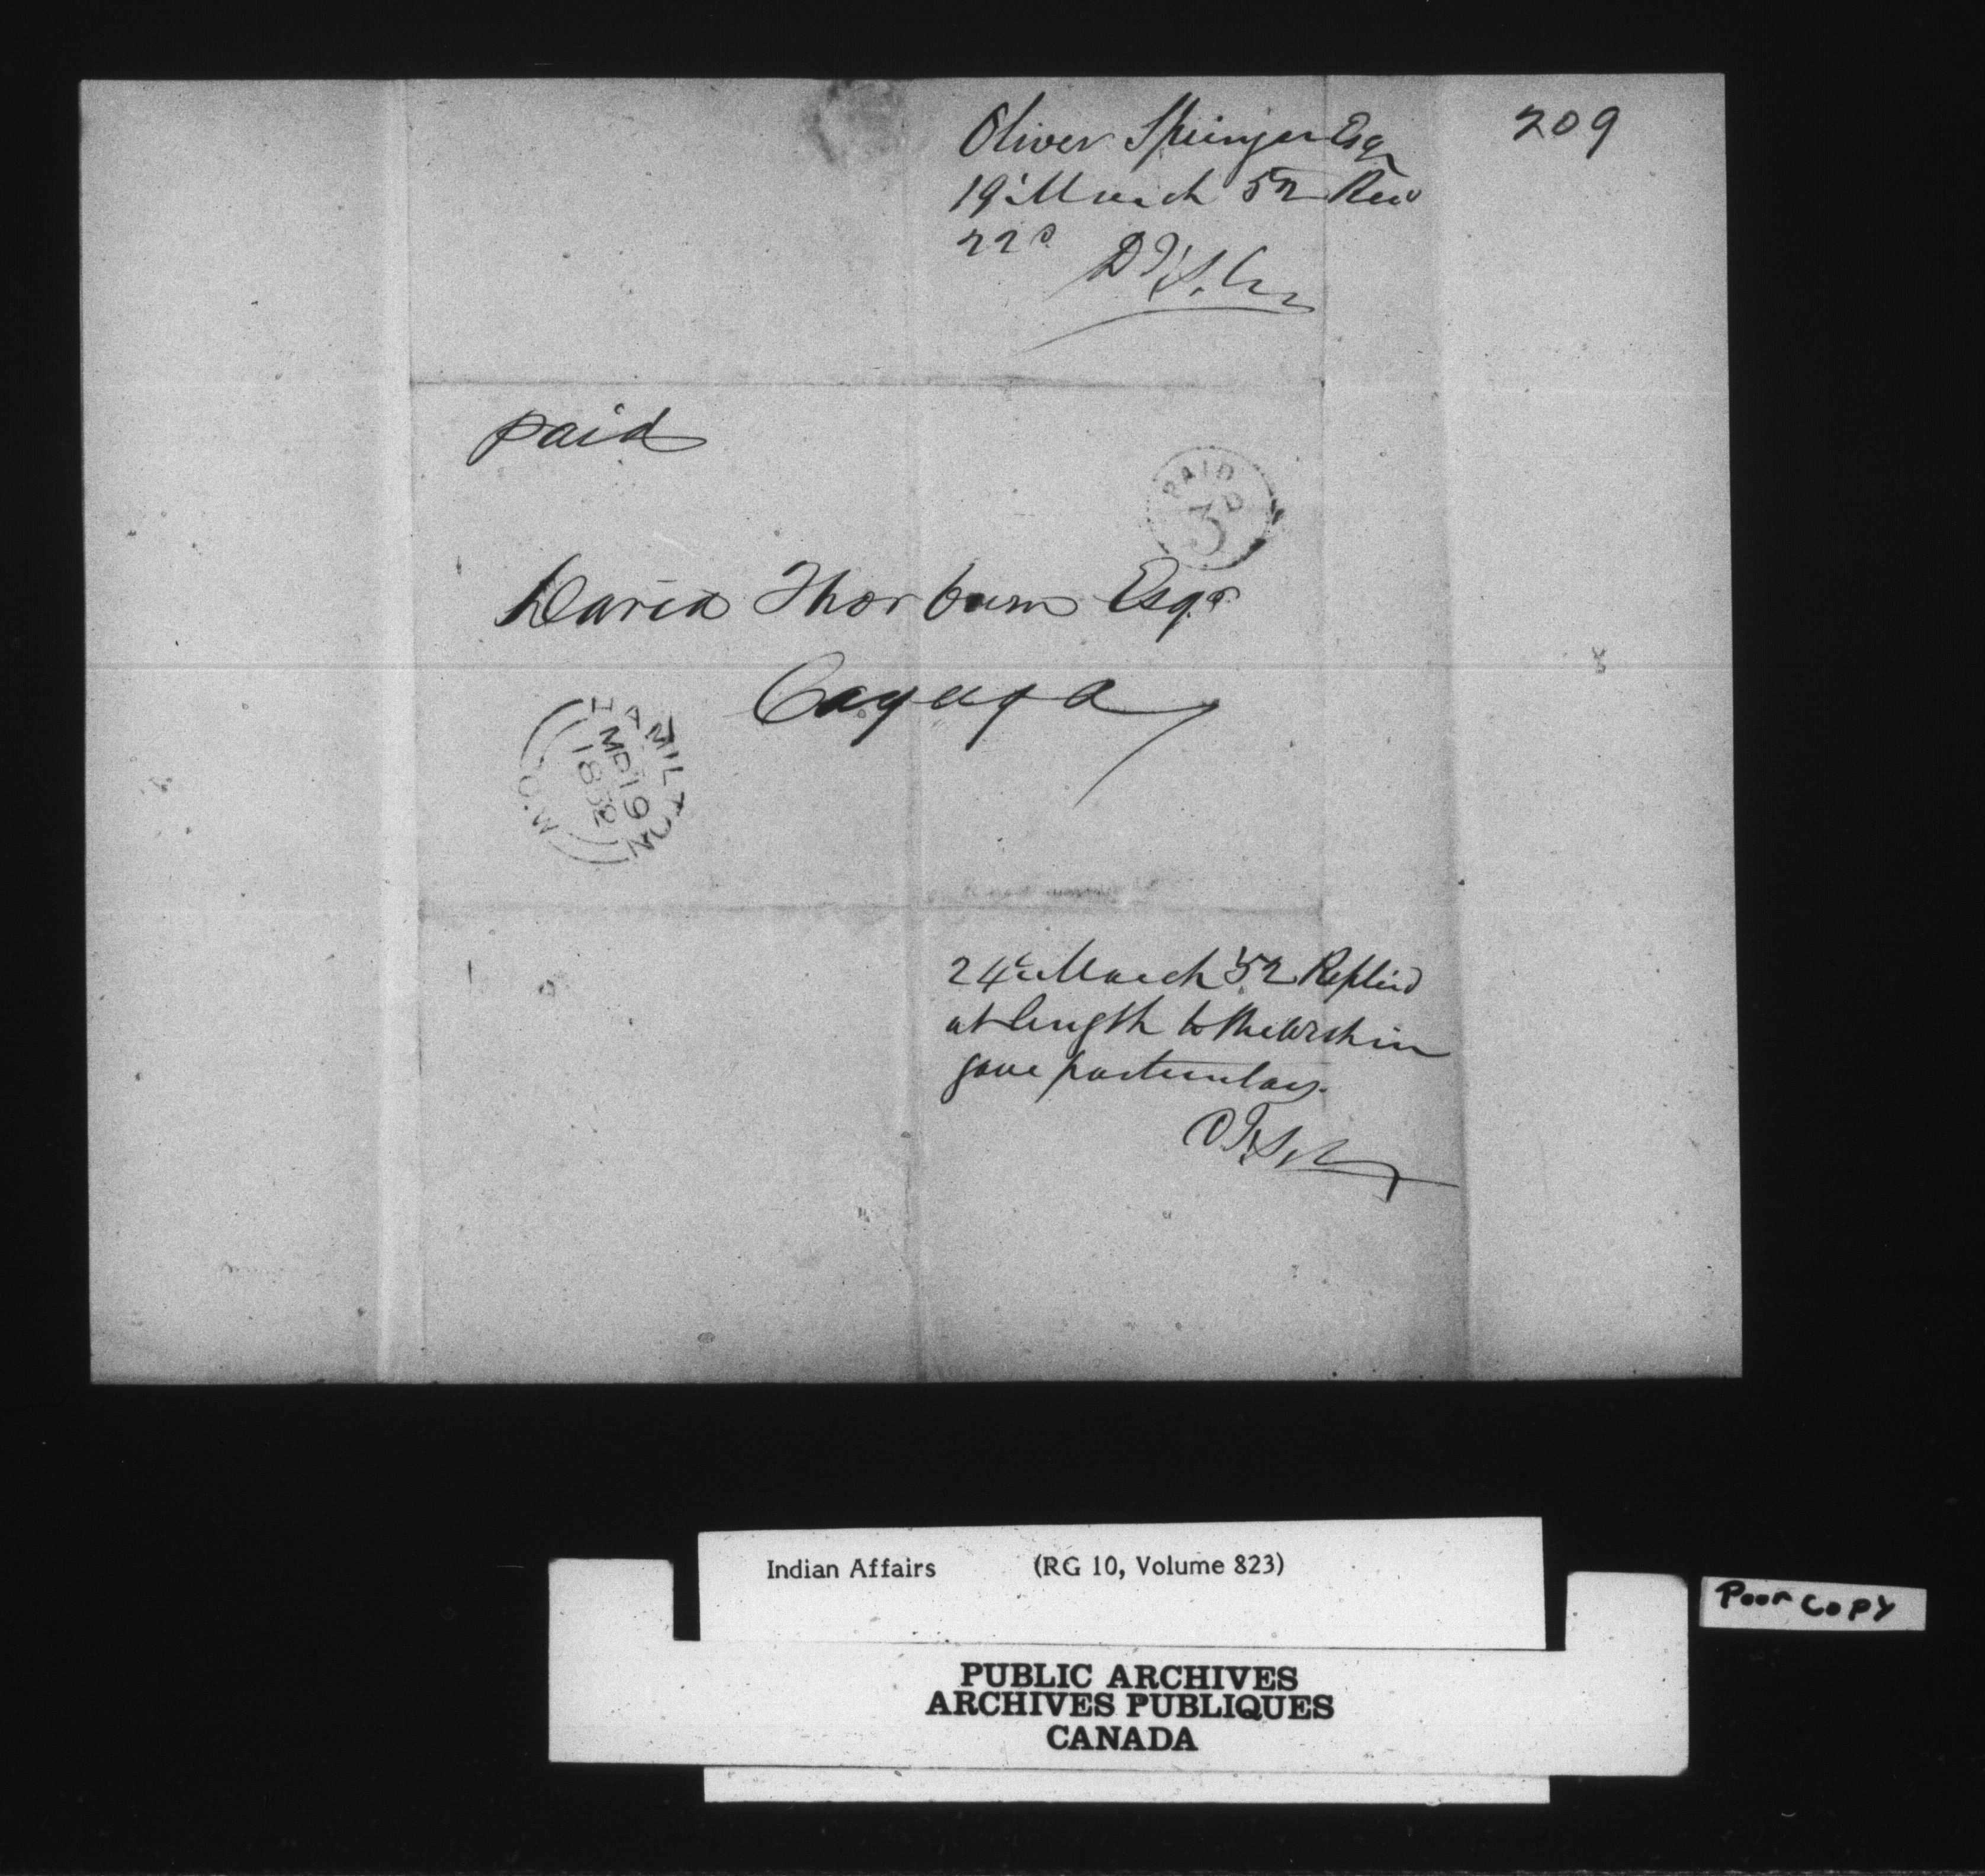 209
Oliver Springer Esqr
19th March 52 Recd
22d
paid
PAID
3D
David Thorburn Esqr
Cayuga
HAMILTON
MR 19
1852
C.W
24th March 52 Replied
at length to the within
gave particulars.
Indian Affairs (RG 10, Volume 823)
Poor Copy
PUBLIC ARCHIVES
ARCHIVES PUBLIQUES
CANADA